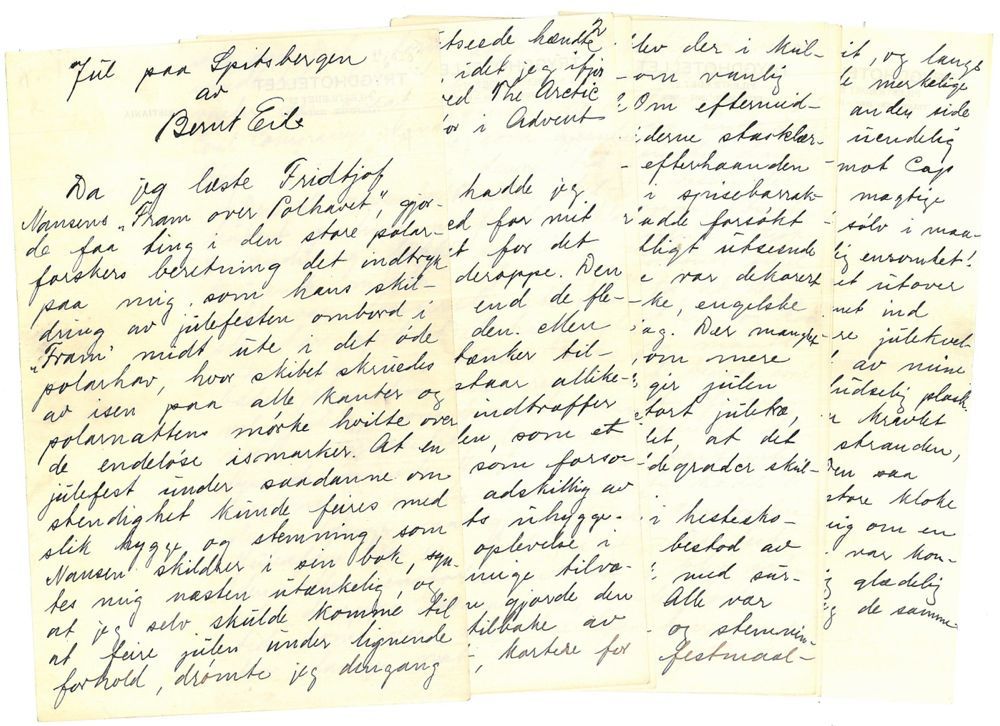 Jul paa Spitsbergen
av
Bernt Eile
Da jeg læste Fridtjof
Nansens „Fram over Polhavet", gjor-
de faa ting i den store polar-
forskers beretning det indtryk
paa mig som hans skil-
dring av julefesten ombord i
„Fram" midt ute i det øde
polarhav, hvor skibet skruedes
av isen paa alle kanter og
polarnattens mørke hvilte over
de endeløse ismarker. At en
julefest under saadanne om
stendighet kunde feires med
slik hygge og stemning, som
Nansen skildrer i sin bok, syn-
tes mig næsten utænkelig, og
at jeg selv skulde komme til
at feire julen under lignende
forhold, drømte jeg dengang
2
hændte
idet jeg ifjor
ved The Arctic
i Advent
hadde jeg
ed for mit
t for det
deroppe. Den
end de fle-
den. Men
tænker til-
staar allike-
indtræffer
len, som et
som forso-
adskillig av
ts uhygge.
oplevelse i
mige tilvæ-
gjorde den
tilbake av
, kortere for
blev der i kul-
om vanlig
Om eftermid-
derne stasklær-
efterhaanden
i spisebarrak-
adde forsøkt
ligt utseende
e var dekorert
ke, engelske
ag. Der mangler
om mere
gir julen
stort juletræ,
let, at det
de grader skul-
i hestesko-
bestod av
med sur-
Alle var
og stemnin-
festmaal-
it, og lange
merkelige
anden side
uendelig
mot Cap
mægtige
sølv i maa-
lig ensomhet!
et utover
net ind
re julekvel-
av mine
pludselig plask
kravlet
stranden,
Den saa
store kloke
mig om en
var kom-
glædelig
de samme-